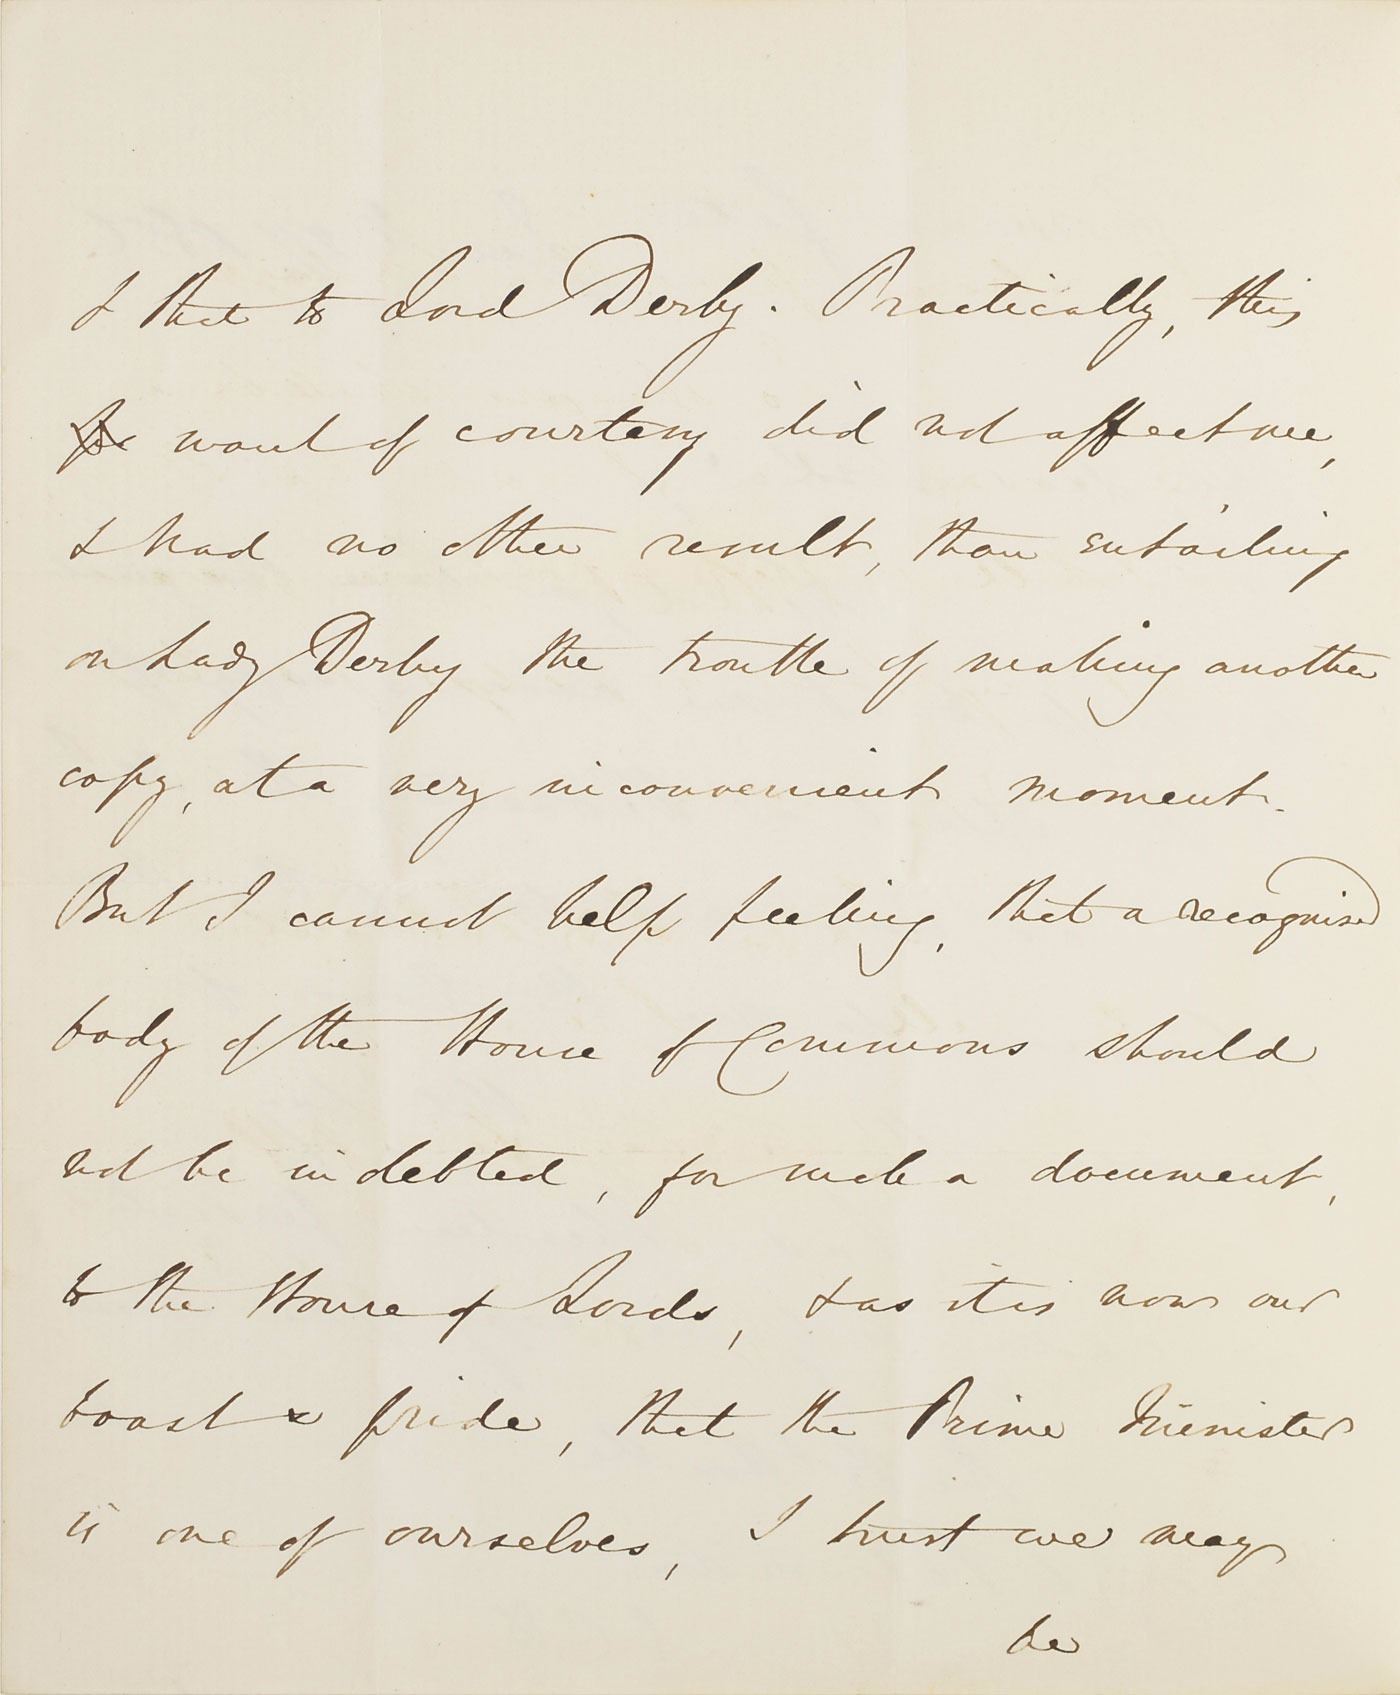 & that to Lord Derby. Practically, this
want of courtesy did not affect me,
& had no other result, than entailing
on Lady Derby the trouble of making another
copy, at a very inconvenient moment.
But I cannot help feeling, that a recognised
body of the House of Commons should
not be indebted, for such a document,
to the House of Lords, & as it is now our
boast & pride, that the Prime Minister
is one of ourselves, I trust we may
be